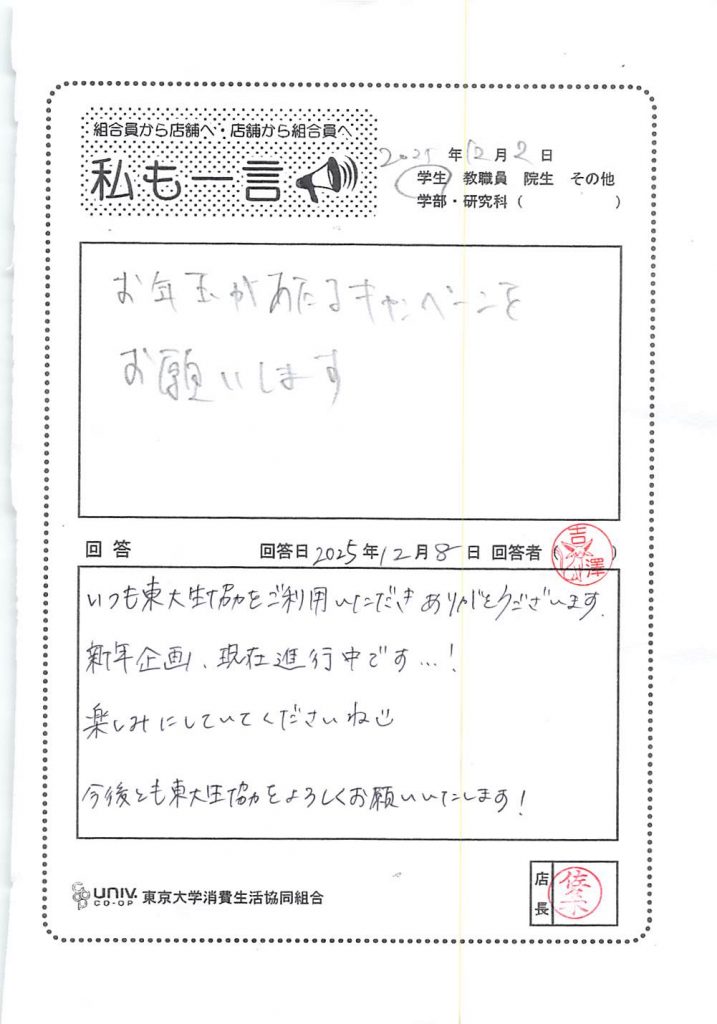 組合員から店舗へ・店舗から組合員へ
私も一言
2025年12月2日
学生 教職員 院生 その他
学部・研究科（　　　　）
お年玉があたるキャンペーンを
お願いします
回答 回答日 2025年12月8日 回答者（吉澤）
いつも東大生協をご利用いただきありがとうございます.
新年企画、現在進行中です…!
楽しみにしていてくださいね
今後とも東大生協をよろしくお願いいたします!
UNIV. CO-OP 東京大学消費生活協同組合
店長